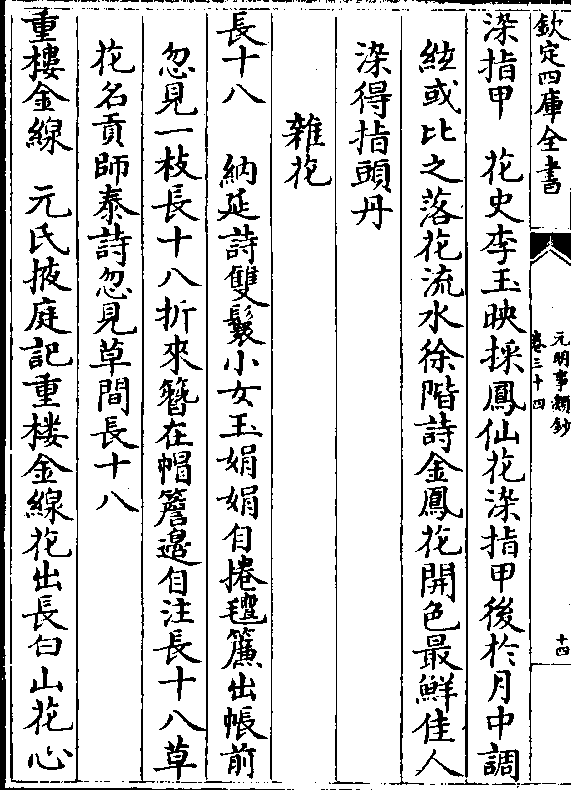 欽定四庫全書
元明事類鈔
卷三十四
十四
染指甲　花史李玉映採鳳仙花染指甲後於月中調
絃或比之落花流水徐階詩金鳳花開色最鮮佳人
染得指頭丹
雜花
長十八　納延詩雙鬟小女玉娟娟自捲氊簾出帳前
忽見一枝長十八折來簪在帽簷邉自注長十八草
花名貢師泰詩忽見草間長十八
重樓金線　元氏掖庭記重樓金線花出長白山花心